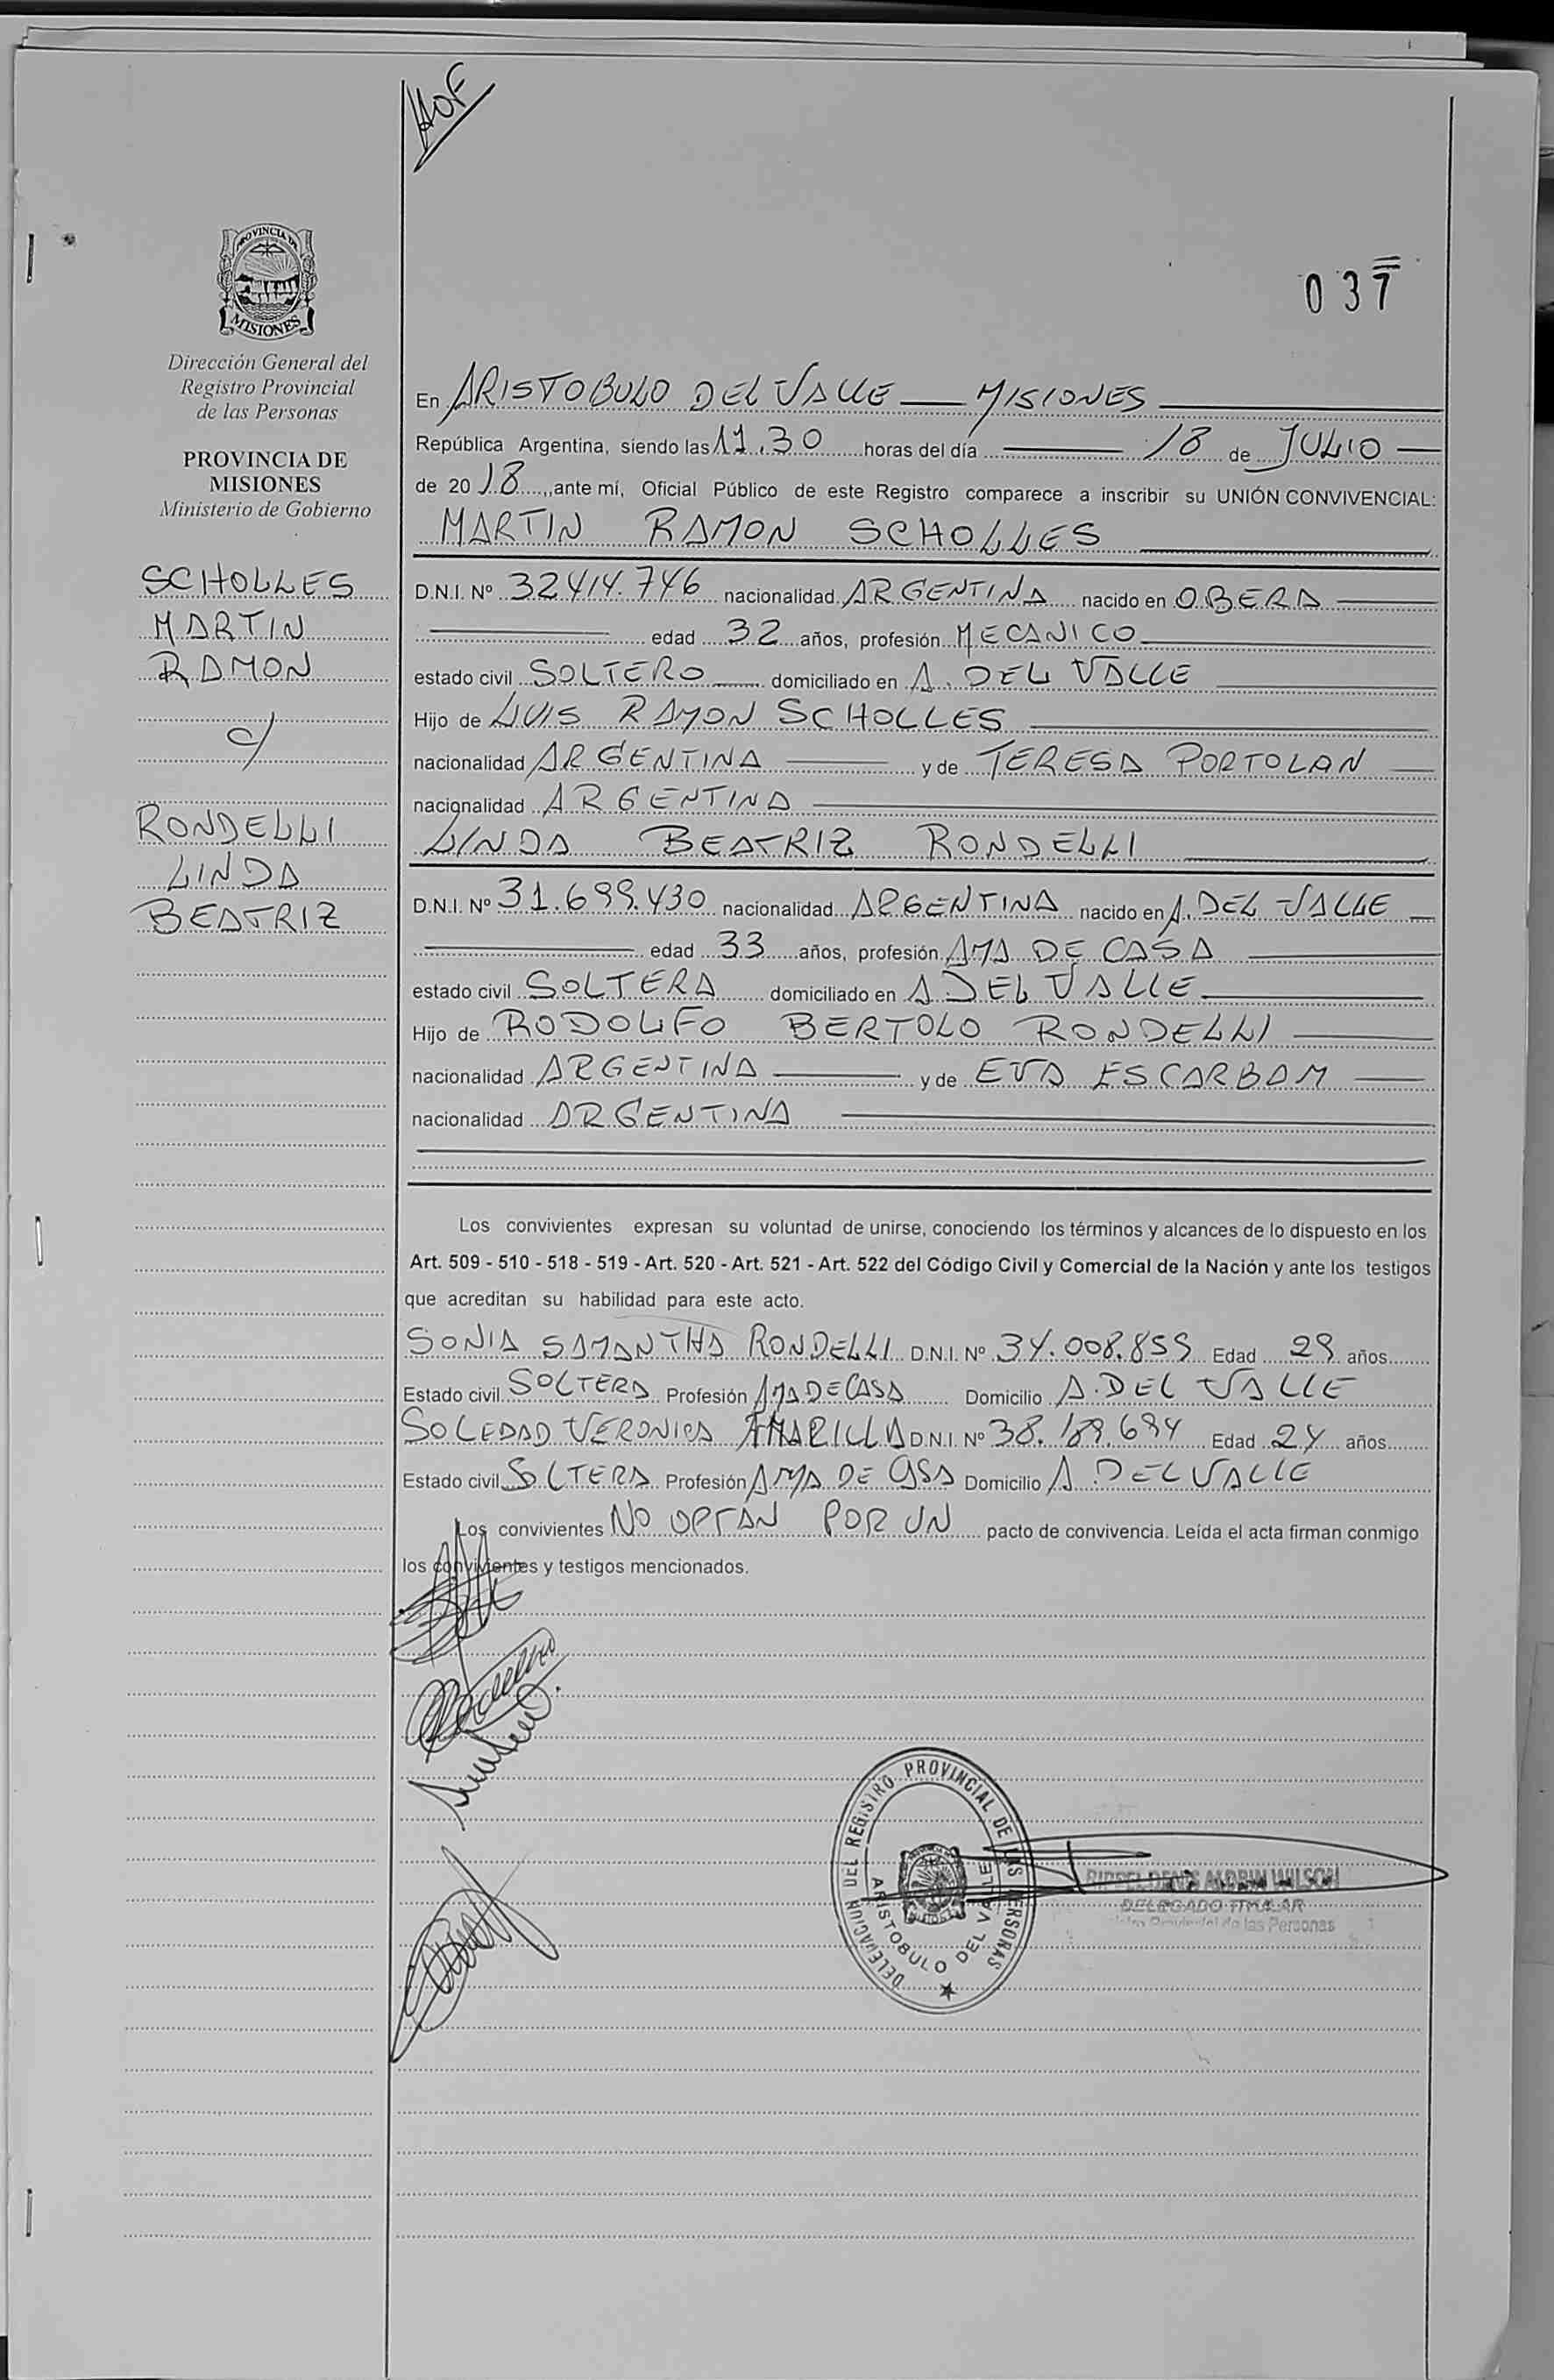 HOF
037
PROVINCIA DE
MISIONES
Dirección General del
Registro Provincial
de las Personas
PROVINCIA DE
MISIONES
Ministerio de Gobierno
SCHOLLES
MARTIN
RAMON
c/
RONDELLI
LINDA
BEATRIZ
En ARISTOBULO DEL VALLE — MISIONES
República Argentina, siendo las 11.30 horas del día 18 de JULIO
de 2018, ante mí, Oficial Público de este Registro comparece a inscribir su UNIÓN CONVIVENCIAL:
MARTIN RAMON SCHOLLES
D.N.I. Nº 32.414.746 nacionalidad ARGENTINA nacido en OBERA
edad 32 años, profesión MECANICO
estado civil SOLTERO domiciliado en A. DEL VALLE
Hijo de LUIS RAMON SCHOLLES
nacionalidad ARGENTINA y de TERESA PORTOLAN
nacionalidad ARGENTINA
LINDA BEATRIZ RONDELLI
D.N.I. Nº 31.699.430 nacionalidad ARGENTINA nacido en A. DEL VALLE
edad 33 años, profesión AMA DE CASA
estado civil SOLTERA domiciliado en A DEL VALLE
Hijo de RODOLFO BERTOLO RONDELLI
nacionalidad ARGENTINA y de EVA ESCARBAM
nacionalidad ARGENTINA
Los convivientes expresan su voluntad de unirse, conociendo los términos y alcances de lo dispuesto en los
Art. 509 - 510 - 518 - 519 - Art. 520 - Art. 521 - Art. 522 del Código Civil y Comercial de la Nación y ante los testigos
que acreditan su habilidad para este acto.
SONIA SAMANTHA RONDELLI D.N.I. Nº 34.008.859 Edad 29 años
Estado civil SOLTERA Profesión AMA DE CASA Domicilio A. DEL VALLE
SOLEDAD VERONICA AMARILLA D.N.I. Nº 38.189.694 Edad 24 años
Estado civil SOLTERA Profesión AMA DE CASA Domicilio A. DEL VALLE
Los convivientes NO OPTAN POR UN pacto de convivencia. Leída el acta firman conmigo
los convivientes y testigos mencionados.
DELEGACION DEL REGISTRO PROVINCIAL DE LAS PERSONAS
ARISTOBULO DEL VALLE
DENIS WILSON
DELEGADO TITULAR
Provincial de las Personas